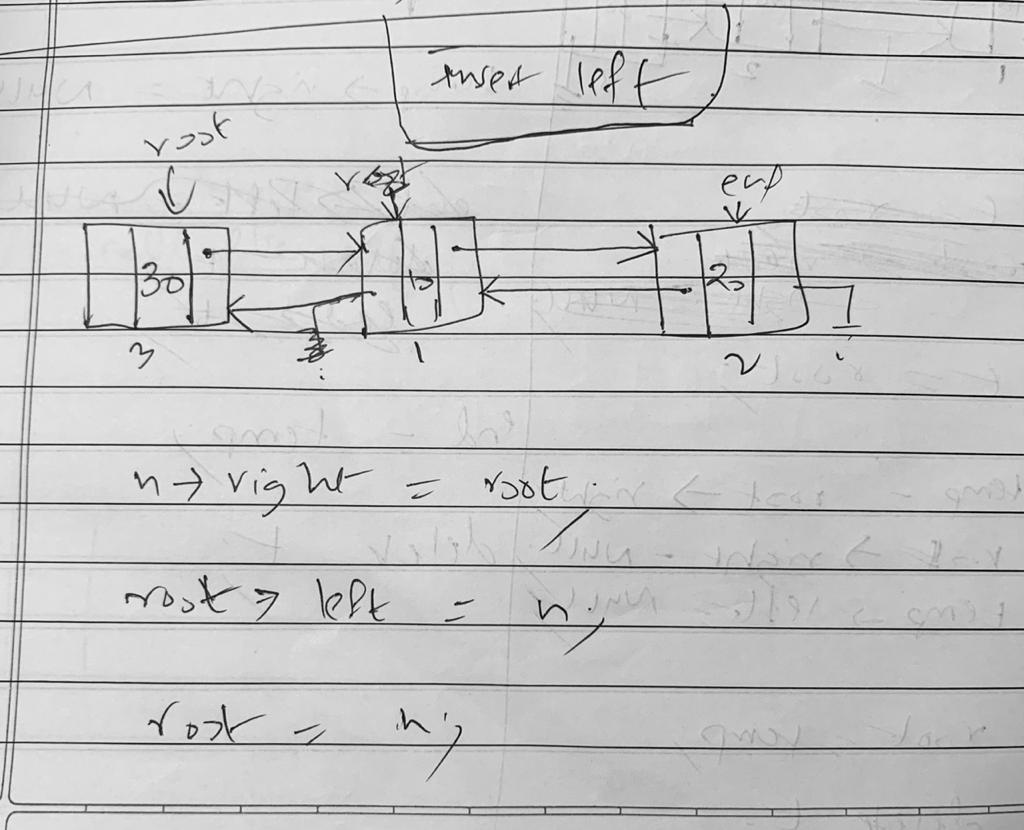 Insert left
root
root
end
30
10
20
3
1
2
n → right = root;
root → left = n;
root = n;